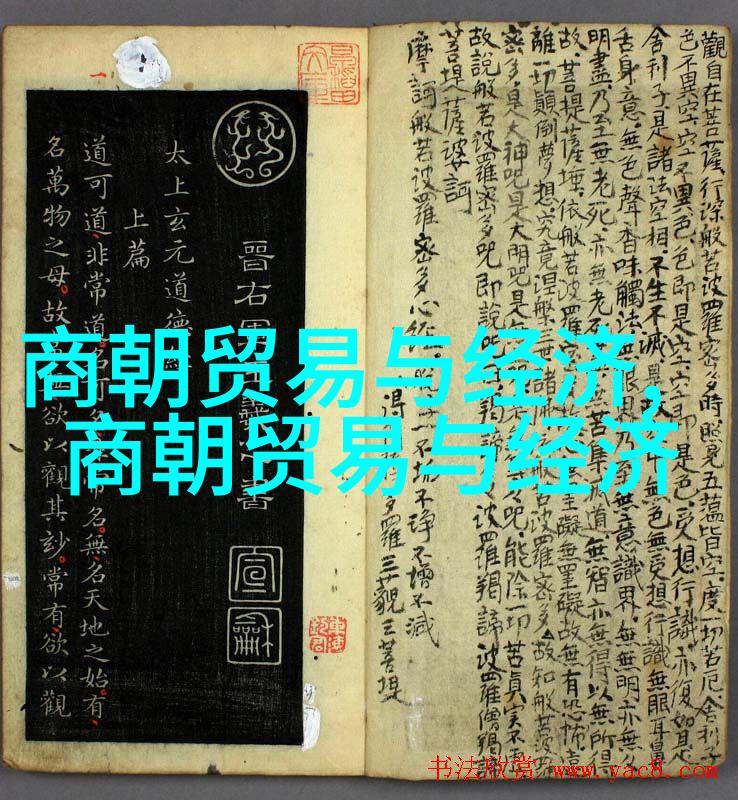 商朝贸易与经济,
商朝贸易与经济
觀自在菩薩行深般若波羅密多時照見五蕴皆空度一切苦厄舍利子
色不異空空不異色色即是空空即是色受想行識亦復如是
舍利子是諸法空相不生不滅是故中無色無受想行識無眼耳鼻
舌身意無色聲香味觸法無眼界乃至無意識界無無明亦無
明盡乃至無老死亦無老苦集道無智亦無得以無所得
故菩提薩埵依般若波羅罣礙無罣礙故無有恐怖遠
離一切顛倒夢想究竟涅槃三世諸波羅密多故知般若波
密多是大神咒是大明咒是咒能除一切苦真实不
故說般若波羅密多咒即說咒揭諦波羅揭諦波羅僧揭諦
菩提薩婆訶
摩訶般若波羅密多心經
不垢不淨不增不減
得多羅三藐三菩提
晋右軍書
宣
龢
太上玄元道德
上篇
道可道非常道名可名無名天地之始有
名萬物之母故欲以觀其妙常有欲以觀
书法欣赏 www.yac8.com